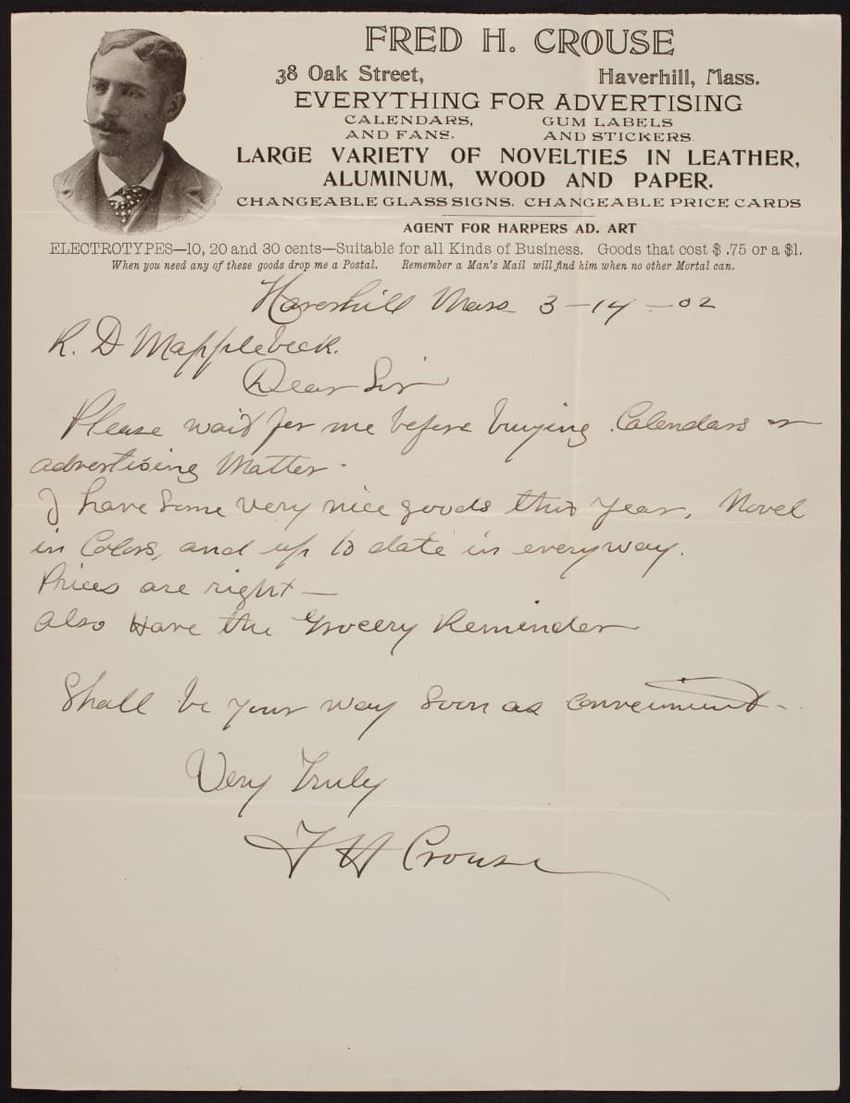 FRED H. CROUSE
38 Oak Street, Haverhill, Mass.
EVERYTHING FOR ADVERTISING
CALENDARS, GUM LABELS
AND FANS. AND STICKERS
LARGE VARIETY OF NOVELTIES IN LEATHER,
ALUMINUM, WOOD AND PAPER.
CHANGEABLE GLASS SIGNS. CHANGEABLE PRICE CARDS
AGENT FOR HARPERS AD. ART
ELECTROTYPES—10, 20 and 30 cents—Suitable for all Kinds of Business. Goods that cost $ .75 or a $1.
When you need any of these goods drop me a Postal. Remember a Man's Mail will find him when no other Mortal can.
Haverhill Mass 3-14-02
R. D Mapplebeck.
Dear Sir
Please wait for me before buying Calendars or
advertising Matter.
I have Some very nice goods this year, Novel
in Colors, and up to date in everyway.
Prices are right—
Also Have the Grocery Reminder
Shall be your way Soon as convenient.
Very Truly
F H Crouse